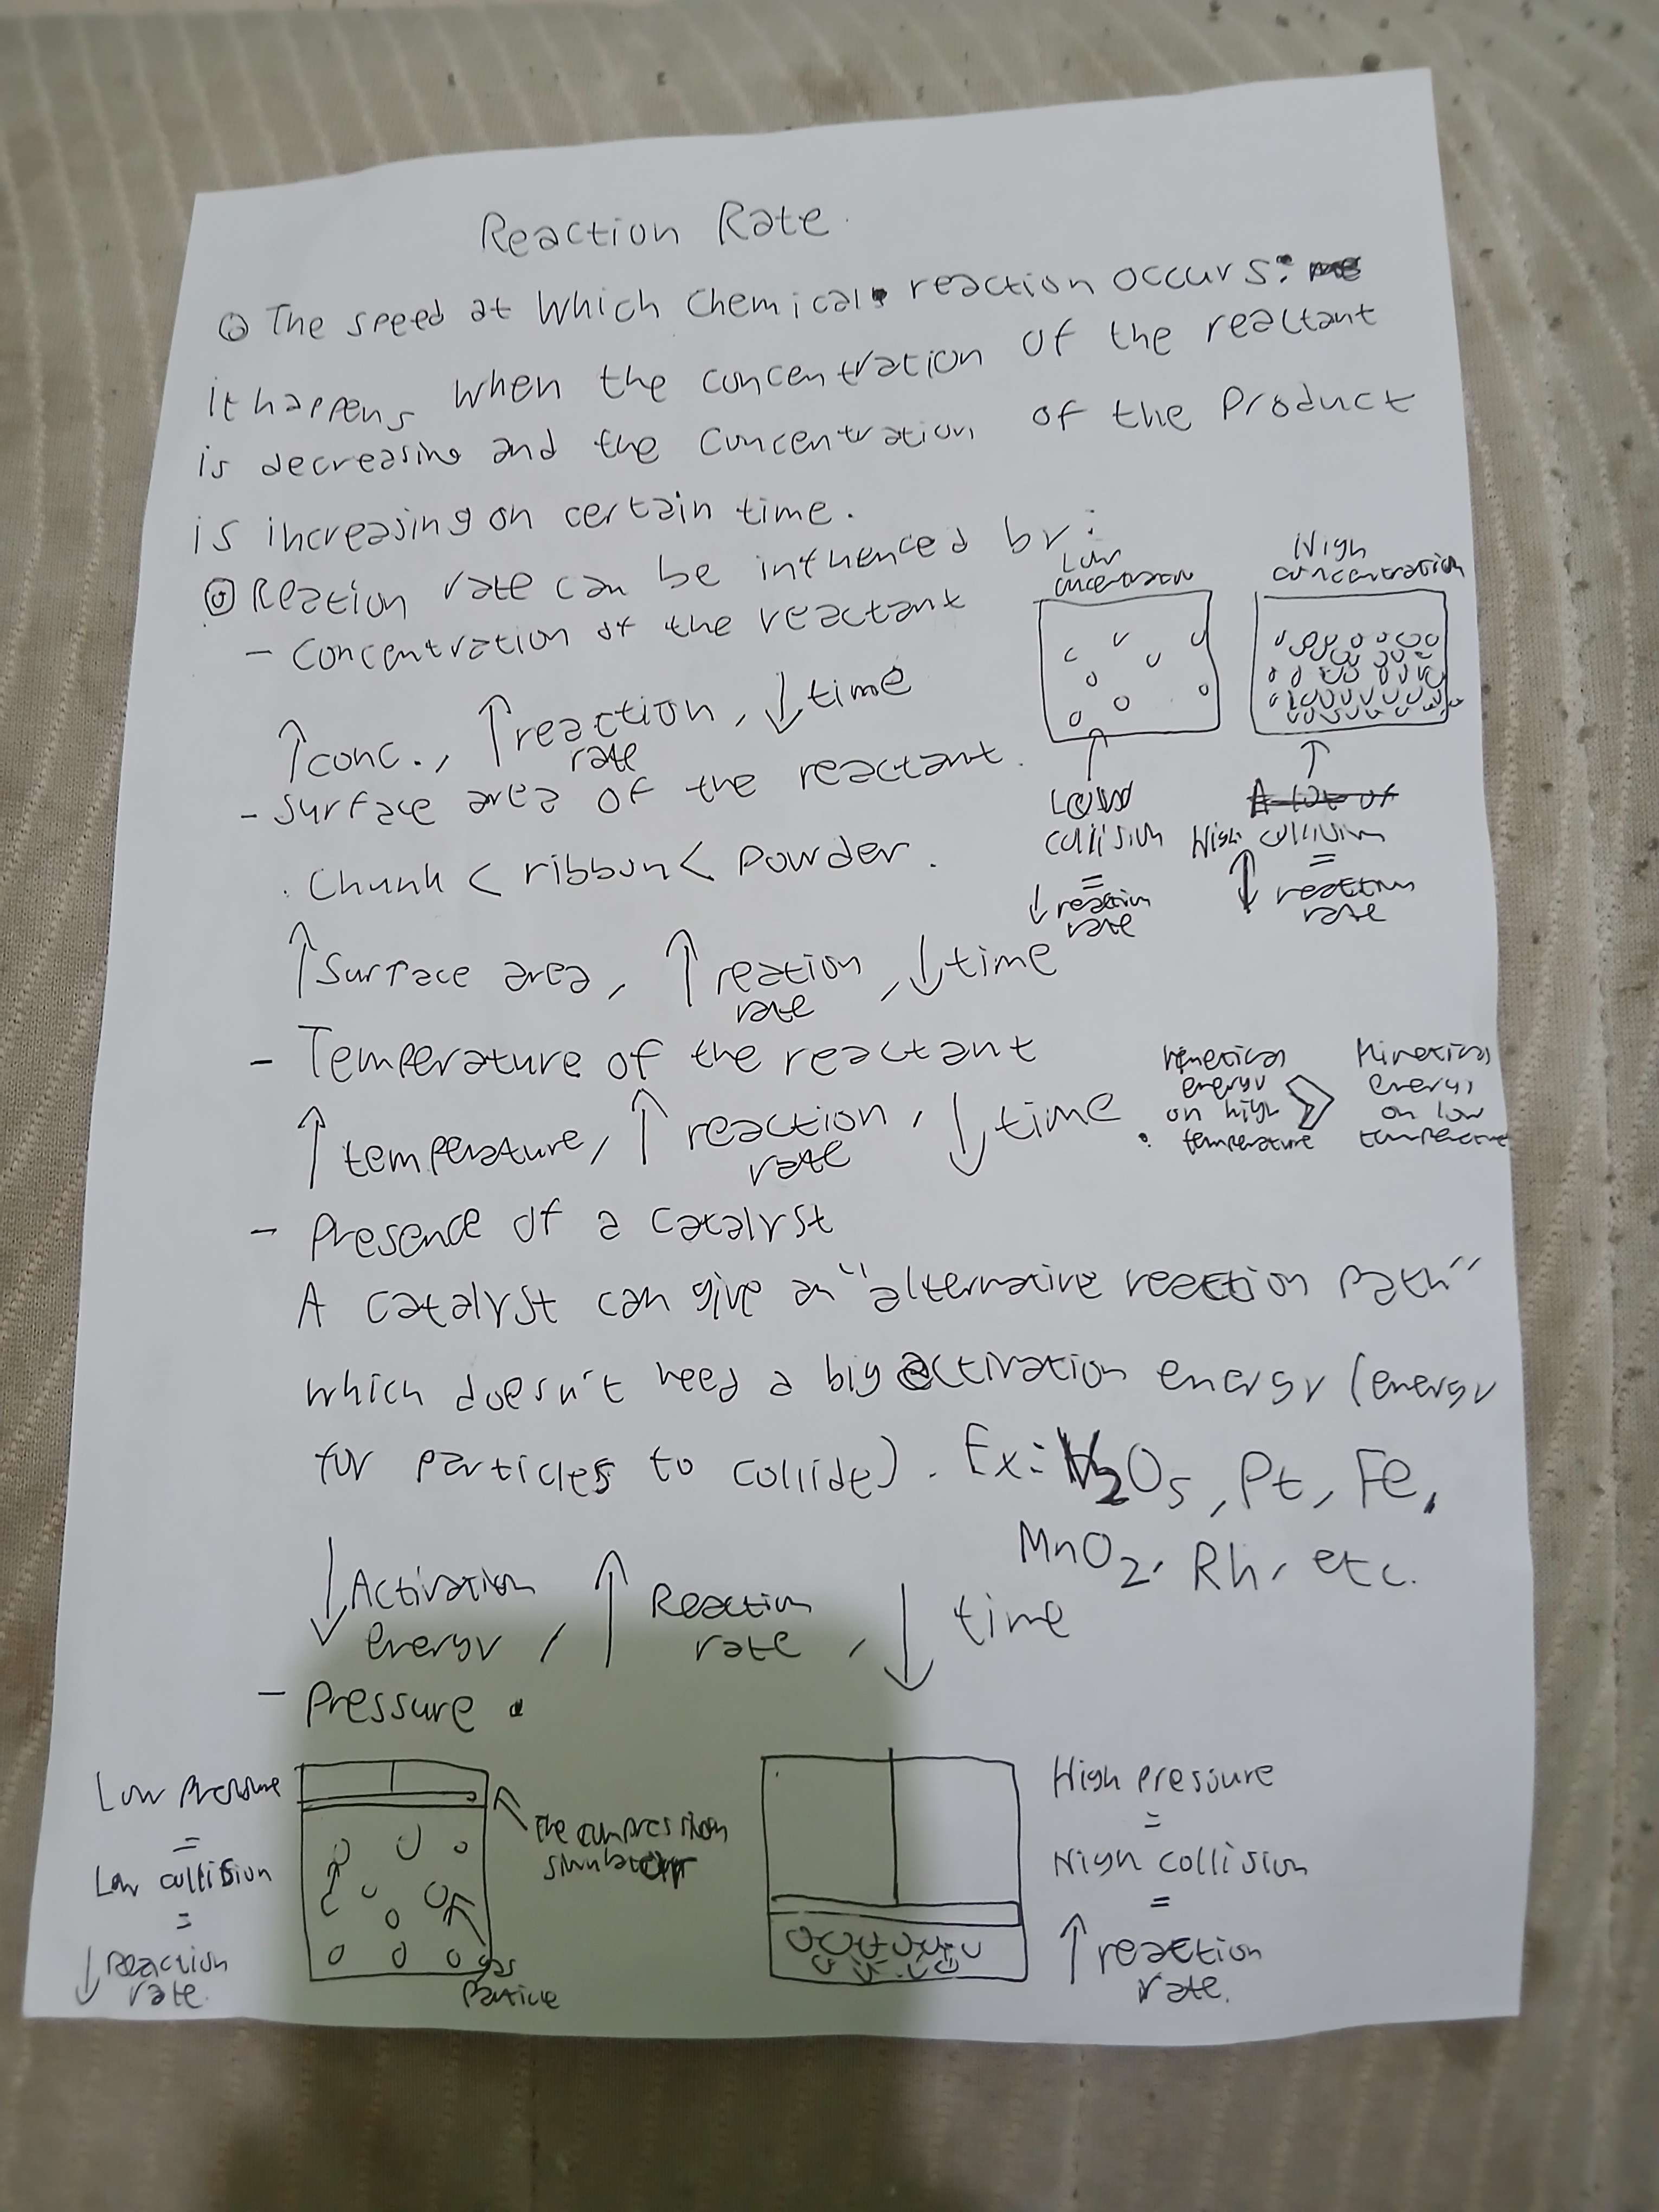 Reaction Rate.
The speed at which chemical reaction occurs.
it happens when the concentration of the reactant
is decreasing and the concentration of the product
is increasing on certain time.
Reaction rate can be influenced by:
- Concentration of the reactant
↑ conc., ↑ reaction rate, ↓ time
Low
High concentration
Low collision = ↓ reaction rate
High collision = ↑ reaction rate
- Surface area of the reactant.
. Chunk < ribbon < powder.
↑ Surface area, ↑ reation rate, ↓ time
- Temperature of the reactant
↑ temperature, ↑ reaction rate, ↓ time
energy on high temperature > Kinetical energy on low temperature
- Presence of a catalyst
A catalyst can give an "alternative reaction path"
which doesn't need a big activation energy (energy
for particles to collide). Ex: V₂O₅, Pt, Fe,
MnO₂, Rh, etc.
↓ Activation energy, ↑ Reaction rate, ↓ time
- Pressure.
Low Pressure
=
Low collision
=
↓ Reaction rate.
The compression
gas particle
High pressure
=
High collision
=
↑ reaction rate.